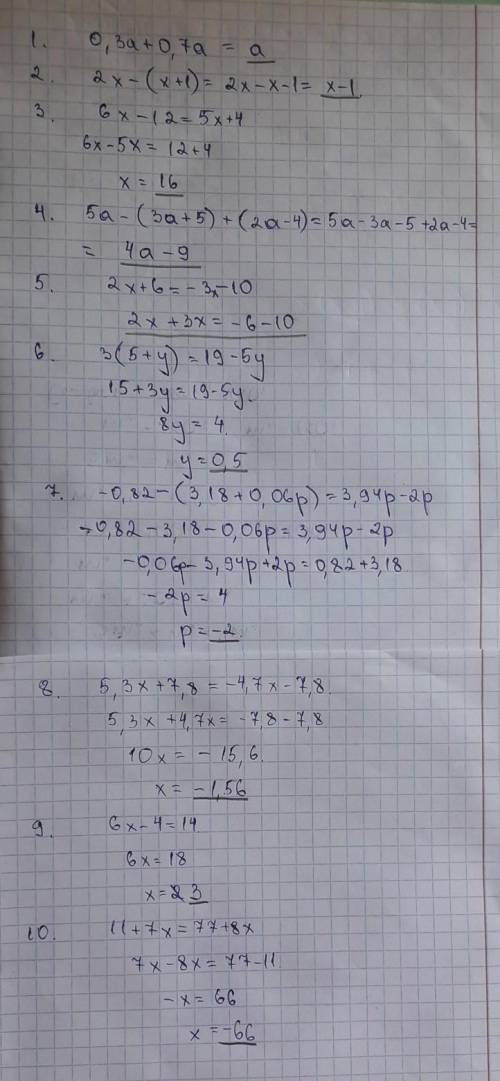 1. 0,3a+0,7a = a
2. 2x-(x+1)= 2x-x-1= x-1
3. 6x-12=5x+4
6x-5x= 12+4
x= 16
4. 5a-(3a+5)+(2a-4)=5a-3a-5+2a-4=
= 4a-9
5. 2x+6=-3x-10
2x+3x=-6-10
6. 3(5+y)=19-5y
15+3y=19-5y
8y=4
y=0,5
7. -0,82-(3,18+0,06p)=3,94p-2p
-0,82-3,18-0,06p=3,94p-2p
-0,06p-3,94p+2p=0,82+3,18
-2p=4
p=-2
8. 5,3x+7,8=-4,7x-7,8
5,3x+4,7x=-7,8-7,8
10x=-15,6
x=-1,56
9. 6x-4=14
6x=18
x=3
10. 11+7x=77+8x
7x-8x=77-11
-x=66
x=-66